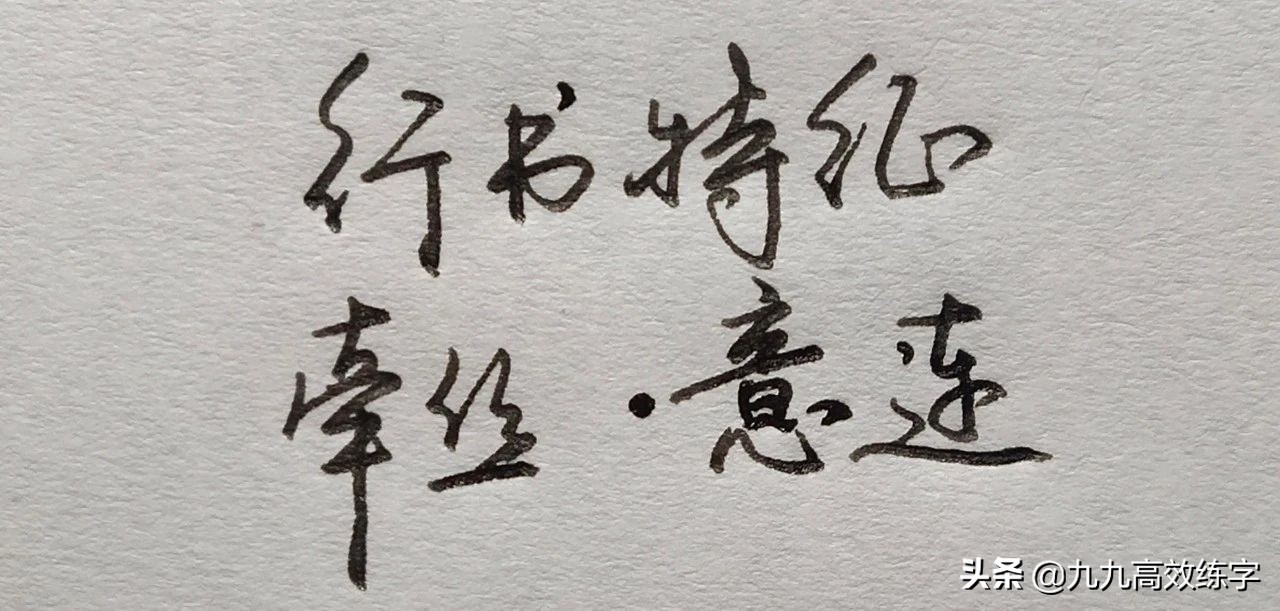 行书特征
牵丝·意连
头条 @九九高效练字